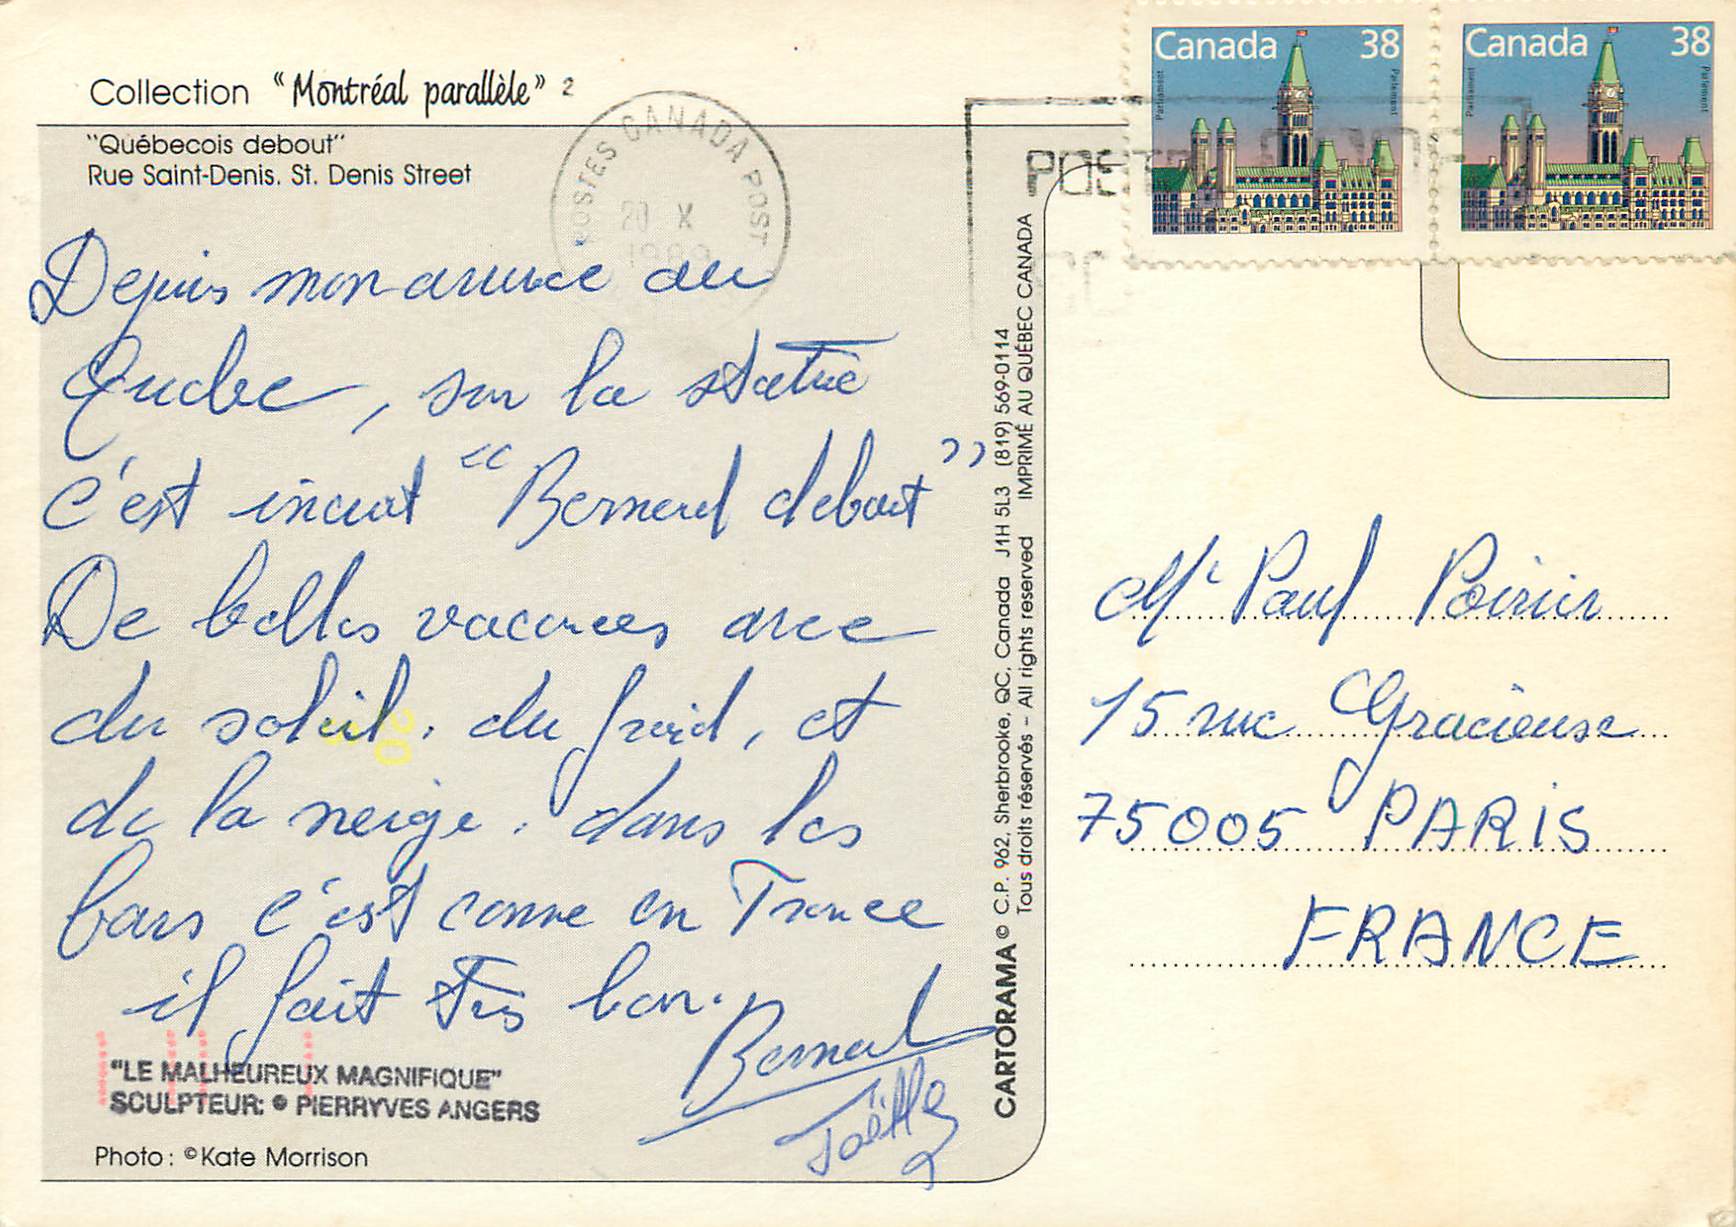 Collection "Montréal parallèle" 2
"Québecois debout"
Rue Saint-Denis. St. Denis Street
POSTES CANADA POST
20 X
198
Canada 38
Parliament
Parlement
Canada 38
Parliament
Parlement
POST
Depuis mon arrivée au
Quebec, sur la statue
c'est inscrit "Bernard debout"
De belles vacances avec
du soleil, du froid, et
de la neige. dans les
bars c'est comme en France
il fait très bon.
Bernard
Joëlle
"LE MALHEUREUX MAGNIFIQUE"
SCULPTEUR: © PIERRYVES ANGERS
Photo: ©Kate Morrison
CARTORAMA © C.P. 962, Sherbrooke, QC, Canada J1H 5L3 (819) 569-0114
Tous droits réservés - All rights reserved IMPRIMÉ AU QUÉBEC CANADA
20
Mr Paul Poirier
15 rue Gracieuse
75005 PARIS
FRANCE